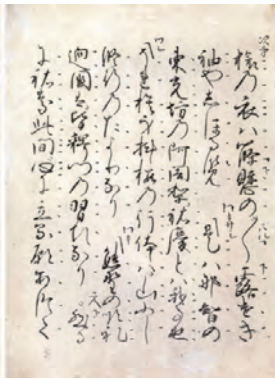 次第 旅乃衣ハ篠懸の〱露けき
袖やしほるらん 是ハ那智の
東光坊の阿闍梨祐慶とハ我事也
捨身抖擻の行体ハ山ふし
修行のたよりなり 熊野の順礼
廻国ハ皆釈門の習なり 然る
に祐慶此間心に立る願あつて